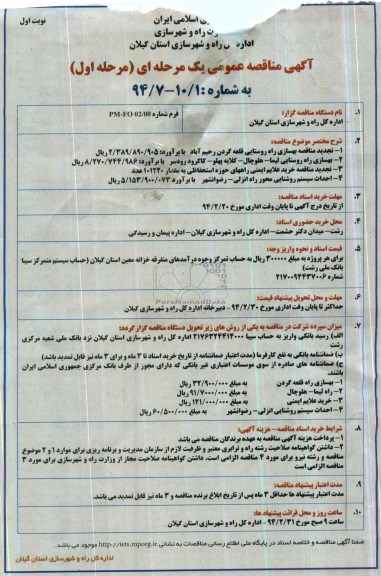 نوبت اول
ی اسلامی ایران
ت راه و شهرسازی
اداره کل راه و شهرسازی استان گیلان
آگهی مناقصه عمومی یک مرحله ای (مرحله اول)
به شماره: ۱۰/۱-۹۴/۷
۱. نام دستگاه مناقصه گزار:
اداره کل راه و شهرسازی استان گیلان
فرم شماره PM-FO 02/00
۲. شرح مختصر موضوع مناقصه:
۱- تجدید مناقصه بهسازی راه روستایی قلعه گردن رحیم آباد با برآورد: ۲/۳۸۹/۸۹۰/۹۰۵ ریال
۲- بهسازی راه روستایی لیما- هلوچال- کلایه پهلو - کاکرود رودسر با برآورد: ۸/۲۷۰/۷۴۴/۹۸۶ ریال
۳- تجدید مناقصه خرید علایم ایمنی راههای حوزه استحفاظی به مقدار ۱۰۱۲۲۰ عدد
۴- احداث سیستم روشنایی محور راه انزلی- رضوانشهر با برآورد ۵/۱۵۳/۹۰۰/۰۷۳ ریال
۳. مهلت خرید اسناد مناقصه:
از تاریخ درج آگهی تا پایان وقت اداری مورخ ۹۴/۲/۲۰
۴. محل خرید حضوری اسناد:
رشت- میدان دکتر حشمت- اداره کل راه و شهرسازی گیلان- اداره پیمان و رسیدگی
۵. قیمت اسناد و نحوه واریز وجه:
برای هر پروژه به مبلغ ۳۰۰۰۰۰ ریال به حساب تمرکز وجوه درآمدهای متفرقه خزانه معین استان گیلان (حساب سیستم متمرکز سیبا
بانک ملی رشت)
شماره ۲۱۷۰۰۹۴۴۳۷۰۰۶
۶. مهلت و محل تحویل پیشنهاد قیمت:
حداکثر تا پایان وقت اداری مورخ ۹۴/۲/۳۰ - دبیرخانه اداره کل راه و شهرسازی گیلان
۷. میزان سپرده شرکت در مناقصه به یکی از روش های زیر تحویل دستگاه مناقصه گزار گردد:
الف) رسید بانکی واریز به حساب سیبا ۲۱۷۶۳۲۴۴۱۴۰۰۰ اداره کل راه و شهرسازی استان گیلان نزد بانک ملی شعبه مرکزی
رشت
ب) ضمانتنامه بانکی به نفع کارفرما (مدت اعتبار ضمانتنامه از تاریخ خرید اسناد تا ۳ ماه و برای ۳ ماه نیز قابل تمدید باشد)
ج) ضمانتنامه های صادره از سوی موسسات اعتباری غیر بانکی که دارای مجوز از طرف بانک مرکزی جمهوری اسلامی ایران
باشند.
۱- بهسازی راه قلعه گردن به مبلغ ۳۲/۹۰۰/۰۰۰ ریال
۲- راه لیما- هلوچال به مبلغ ۹۱/۷۰۰/۰۰۰ ریال
۳- خرید علایم ایمنی به مبلغ ۱۲۱/۰۰۰/۰۰۰ ریال
۴- احداث سیستم روشنایی انزلی- رضوانشهر به مبلغ ۶۰/۵۰۰/۰۰۰ ریال
۸. شرایط خرید اسناد مناقصه- هزینه آگهی:
۱- پرداخت هزینه آگهی مناقصه به عهده برندگان مناقصه می باشد
۲- داشتن گواهینامه صلاحیت رشته راه و ترابری معتبر و ظرفیت لازم از سازمان مدیریت و برنامه ریزی برای موارد ۱ و ۲ موضوع
مناقصه و رشته نیرو برای مورد ۴ مناقصه الزامی است. داشتن گواهینامه صلاحیت مجاز از وزارت راه و شهرسازی برای مورد ۳
مناقصه الزامی است
۹. مدت اعتبار پیشنهاد مناقصه:
مدت اعتبار پیشنهاد ها حداقل ۳ ماه پس از تاریخ ابلاغ برنده مناقصه و ۳ ماه نیز قابل تمدید می باشد.
۱۰. ساعت روز و محل قرائت پیشنهاد ها:
ساعت ۹ صبح مورخ ۹۴/۲/۳۱ - اداره کل راه و شهرسازی استان گیلان
ضمنا آگهی مناقصه و خلاصه اسناد در پایگاه ملی اطلاع رسانی مناقصات به نشانی http://iets.mporg.ir موجود می باشد.
اداره کل راه و شهرسازی استان گیلان